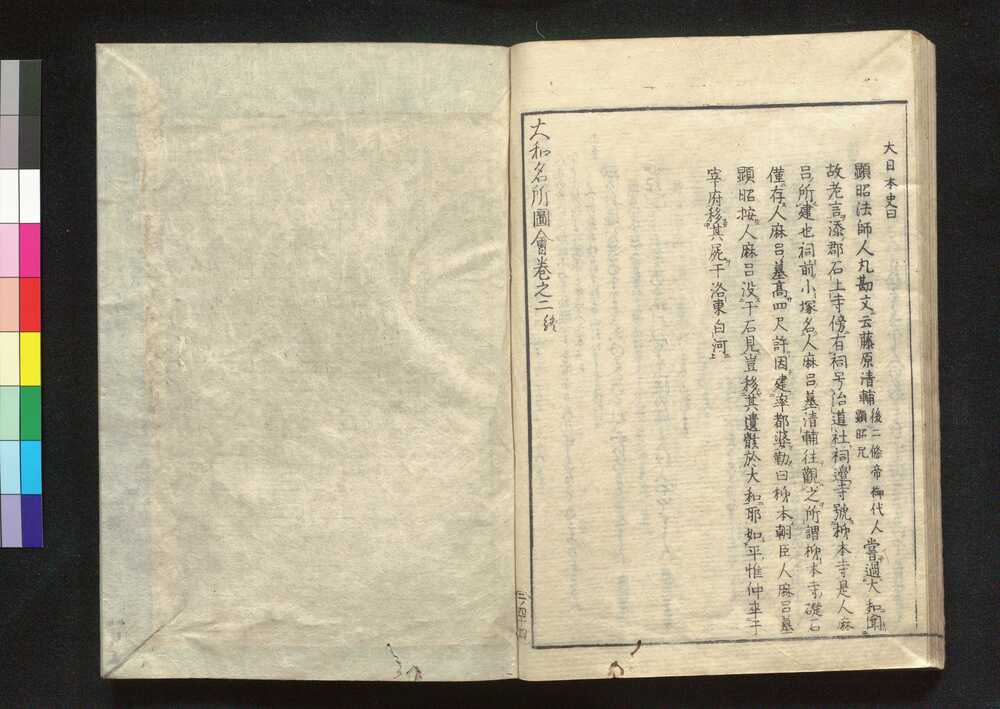 大日本史曰
顕昭法師人丸勘文云藤原清輔後二條帝御代人顕昭兄嘗過大和聞
故老言添郡石上寺傍有祠号治道社祠邊寺號柿本寺是人麻
呂所建也祠前小塚名人麻呂墓清輔往觀之所謂柿本寺礎石
僅存人麻呂墓高四尺許因建率都婆勒曰柿本朝臣人麻呂墓
顕昭按人麻呂没于石見豈移其遺骸於大和耶如平惟仲卒于
宰府移其屍于洛東白河
大和名所圖會卷之二終